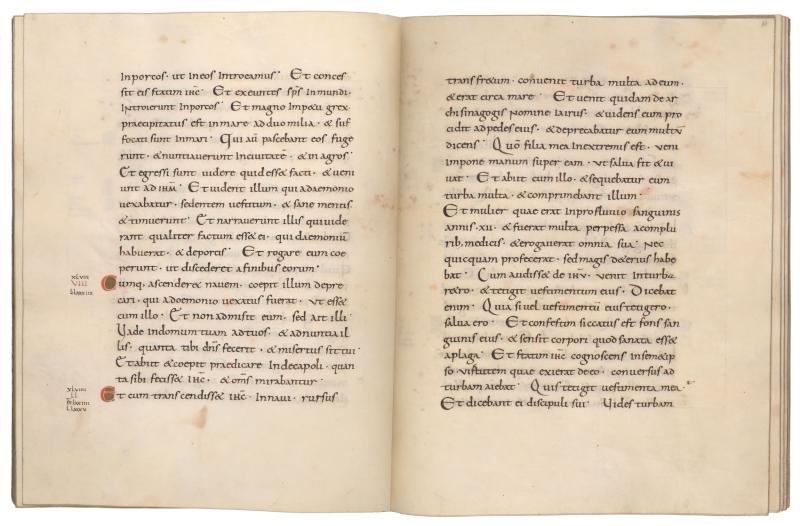 Inporcos· ut Ineos Introeamus· Et conces
sit eis statim ihc· Et exeuntes sps Inmundi·
Introierunt Inporcos· Et magno Impetu grex
praecipitatus est inmare adduo milia· & suf
focati sunt Inmari· Qui aut pascebant eos fuge
runt· & nuntiauerunt Inciuitate· & in agros·
Et egressi sunt uidere quid esset facti· & ueni
unt ad ihm· Et uident illum qui adaemonio
uexabatur· sedentem uestitum· & sane mentis
& timuerunt· Et narrauerunt illis qui uide
rant qualiter factum esset ei· qui daemoniu
habuerat· & deporcis· Et rogare eum coe
perunt· ut discederet afinibus eorum·
XLVIII
VIII
Cumq· ascenderet nauem· coepit illum depre
cari· qui adaemonio uexatus fuerat· Vt esset
cum illo· Et non admisit eum· sed ait illi·
Uade Indomum tuam adtuos· & adnuntia il
lis· quanta tibi dns fecerit· & misertus sit tui·
Et abiit & coepit praedicare Indecapoli· quan
ta sibi fecisset ihc· & oms mirabantur·
XLVIIII
II
Et cum transcendisset ihc· Innaui· rursus
trans fretum· conuenit turba multa ad eum·
& erat circa mare· Et uenit quidam de ar
chisinagogis Nomine Iairus· & uidens eum pro
cidit adpedes eius· & deprecabatur eum multu
dicens· Qm filia mea Inextremis est· ueni
Impone manum super eam· Vt salua sit & ui
uat· Et abiit cum illo· & sequebatur eum
turba multa· & comprimebant illum·
Et mulier quae erat Inprofluuio sanguinis
annis· xii· & fuerat multa perpessa acomplu
rib; medicis· & erogauerat omnia sua· Nec
quicquam profecerat· sed magis deterius habe
bat· Cum audisset de ihu· uenit Inturba
retro· & tetigit uestimentum eius· Dicebat
enim· Quia si uel uestimentu eius tetigero·
salua ero· Et confestim siccatus est fons san
guinis eius· & sensit corpori quod sanata esset
aplaga· Et statim ihc cognoscens Insemetip
so· uirtutem quae exierat deeo· conuersus ad
turbam aiebat· Quis tetigit uestimenta mea·
Et dicebant ei discipuli sui· Uides turbam